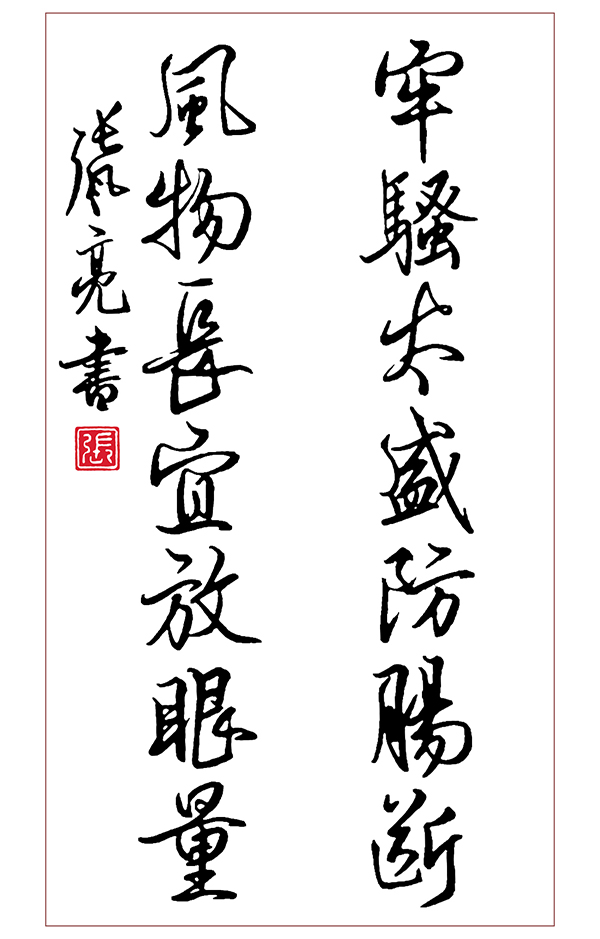 牢騷太盛防腸斷
風物長宜放眼量
張凤亮書
張